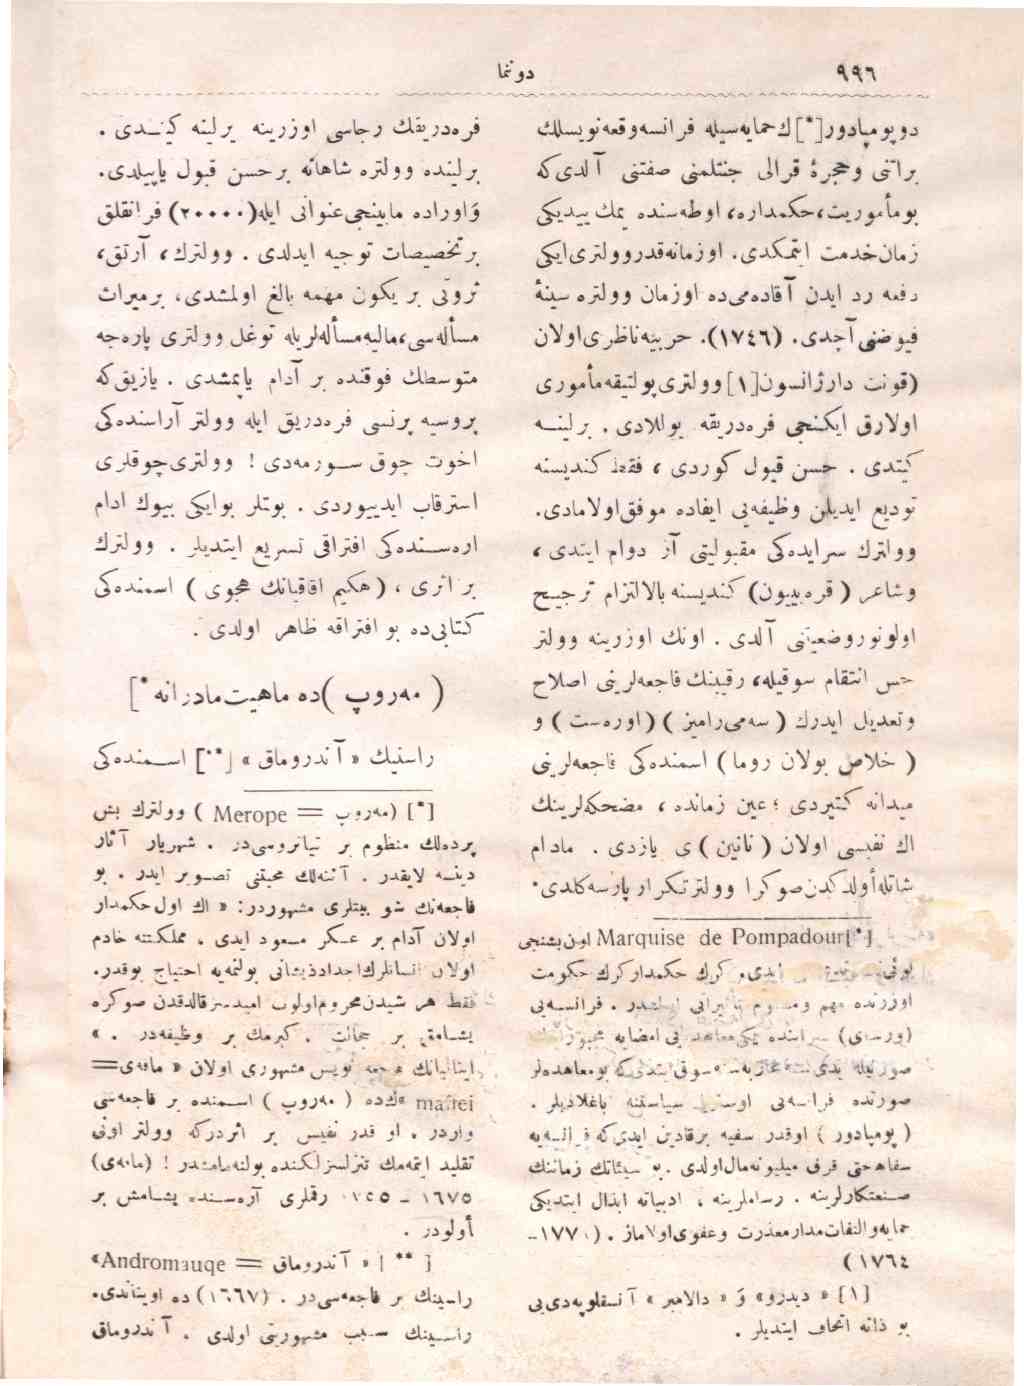 ٩٩٦
دوننما
دوپومپادور[*]ك حمایه‌سیله فرانسه‌وقعه‌نویسلك
براتنی وحجرهٔ قرالی جنتلمنی صفتنی آلدی‌كه
بومأموریت،حكمداره، اوطه‌سنده یمك ییدیكی
زمان‌خدمت ایتمكدی. اوزمانه‌قدروولتری‌ایكی
دفعه رد ایدن آقاده‌می‌ده اوزمان وولتره سینهٔ
فیوضنی آچدی. (١٧٤٦). حربیه‌ناظری‌اولان
(قونت دارژانسون[١]وولتری‌پولتیقه‌مأموری
اولارق ایكنجی فره‌دریقه یوللادی. برلینـه
كیتدی. حسن قبول كوردی، فقط كندیسنه
تودیع ایدیلن وظیفه‌یی ایفاده موفق‌اولامادی.
وولترك سرایده‌كی مقبولیتی آز دوام ایتدی،
وشاعر (قره‌بییون) كندیسنه بالالتزام ترجیح
اولونوروضعیتنی آلدی. اونك اوزرینه وولتر
حس انتقام سوقیله، رقیبنك فاجعه‌لرینی اصلاح
وتعدیل ایدرك (سه‌می‌رامیز) (اوره‌ست) و
(خلاص بولان روما) اسمنده‌كی فاجعه‌لرینی
میدانه كتیردی؛ عین زمانده، مضحكه‌لرینك
اك نفیسی اولان (نانین) ی یازدی. مادام
شاتله‌أولدكدن‌صوكرا وولترتكرار پارسه‌كلدی.
[*]Marquise de Pompadour اون‌بشنجی
ایدی. كرك حكمداركرك حكومت
اوزرنده مهم ومشئوم تأثیراتی اولمشدر. فرانسه‌یی
(ورسای) سراینده یی امضایه
سوق‌ایتدی‌كه بومعاهده‌لر
صورتده فرانسه‌یی اوستریا سیاستنه باغلادیلر.
(پومپادور) اوقدر سفیه برقادین ایدی‌كه فرانسه‌یه
سفاهتی قرق میلیونه‌مال‌اولدی. بو سیئاتك زماننك
صنعتكارلرینه. رساملرینه، ادبیاته ابذال ایتدیكی
حمایه‌والتفات‌مدارمعذرت وعفوی‌اولاماز. (١٧٧١ـ
١٧٦٤)
[١] «دیدرو» و «دالامبر» آنسقلوپه‌دی‌یی
بو ذاته اتحاف ایتدیلر.
فره‌دریقك رجاسی اوزرینه برلینه كیتدی.
برلینده وولتره شاهانه برحسن قبول یاپیلدی.
واوراده مابینجی‌عنوانی ایله(٢٠٠٠٠) فرانقلق
برتخصیصات توجیه ایدلدی. وولترك، آرتق،
ثروتی بر یكون مهمه بالغ اولمشدی، برمیراث
مسأله‌سی،مالیه‌مسأله‌لریله توغل وولتری پاره‌جه
متوسطك فوقنده بر آدام یاپمشدی. یازیق‌كه
پروسیه پرنسی فره‌دریق ایله وولتر آراسنده‌كی
اخوت چوق سورمه‌دی! وولتری‌چوقلری
استرقاب ایدییوردی. بونلر بوایكی بیوك ادام
اره‌سنده‌كی افتراقی تسریع ایتدیلر. وولترك
بر اثری، (هكیم اقاقیانك هجوی) اسمنده‌كی
كتابی‌ده بو افتراقه ظاهر اولدی.
(مه‌روپ)ده ماهیت‌مادرانه [*]
راسنیك «آندروماق» [**] اسمنده‌كی
[*] (مه‌روپ = Merope) وولترك بش
پرده‌لك منظوم بر تیاتروسی‌در. شهریار آثار
دینسه لایقدر. آننه‌لك محبتنی تصویر ایدر. بو
فاجعه‌نك شو بیتلری مشهوردر: «اك اول حكمدار
اولان آدام بر عسكر مسعود ایدی. مملكتنه خادم
اولان انسانلرك‌اجدادذیشانی بولنمه‌یه احتیاج یوقدر.
فقط هر شیدن‌محروم‌اولوب امیدسزقالدقدن صوكره
یشامق بر حجالت. كبرمك بر وظیفه‌در.»
ایتالیانك فاجعه نویس مشهوری اولان «مافه‌ی=
maffei»ك‌ده (مه‌روپ) اسمنده بر فاجعه‌سی
واردر. او قدر نفیس بر اثردركه وولتر اونی
تقلید ایتمه‌مك تنزلسزلكنده بولنه‌مامشدر! (مافه‌ی)
١٦٧٥ ـ رقملری آره‌سنده یشامش بر
أولودر.
[**] «آندروماق = Andromauqe»
راسینك بر فاجعه‌سی‌در. (١٦٦٧) ده اوینادی.
راسینك سبب مشهوریتی اولدی. آندروماق